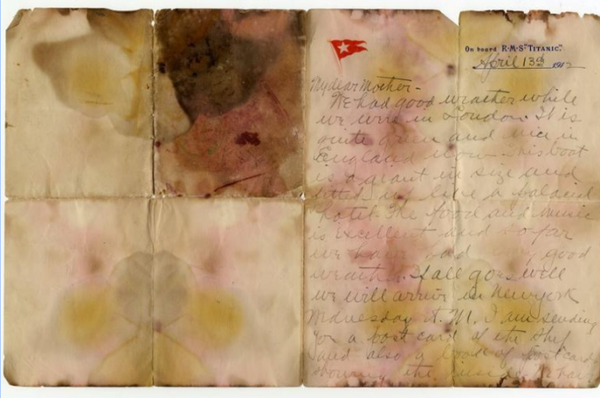 On board R·M·S·"TITANIC".
April 13th 191
My dear Mother -
We had good weather while
we were in London. It is
quite green and nice in
England now. This boat
is a giant in size and
fitted up like a palacial
hotel. The food and music
is excellent and so far
we have had good
weather. If all goes well
we will arrive in New York
Wednesday A.M. I am sending
you a post card of the ship
and also a book of post cards
showing the inside